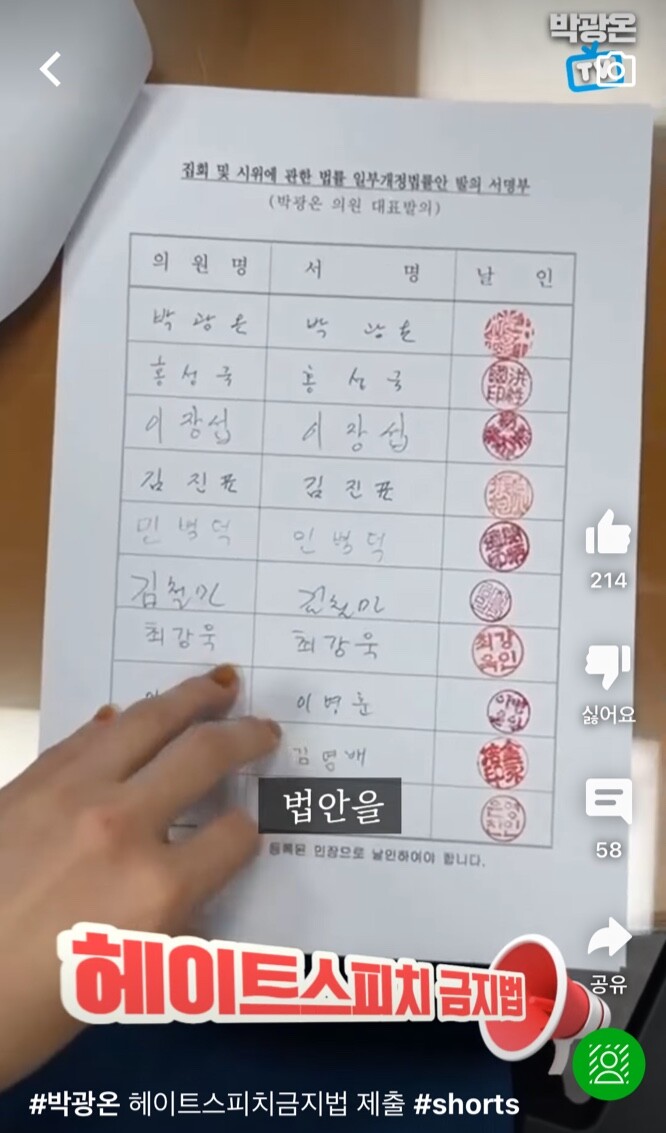 박광온
TV
집회 및 시위에 관한 법률 일부개정법률안 발의 서명부
(박광온 의원 대표발의)
의 원 명 서 명 날 인
박 광 온 박 광 온
홍 성 국 홍 성 국
이 장 섭 이 장 섭
김 진 표 김 진 표
민 병 덕 민 병 덕
김철민 김철민
최강욱 최강욱 최강욱인
이 병 훈
김 영 배
법안을
등록된 인장으로 날인하여야 합니다.
214
싫어요
58
공유
헤이트스피치 금지법
#박광온 헤이트스피치금지법 제출 #shorts